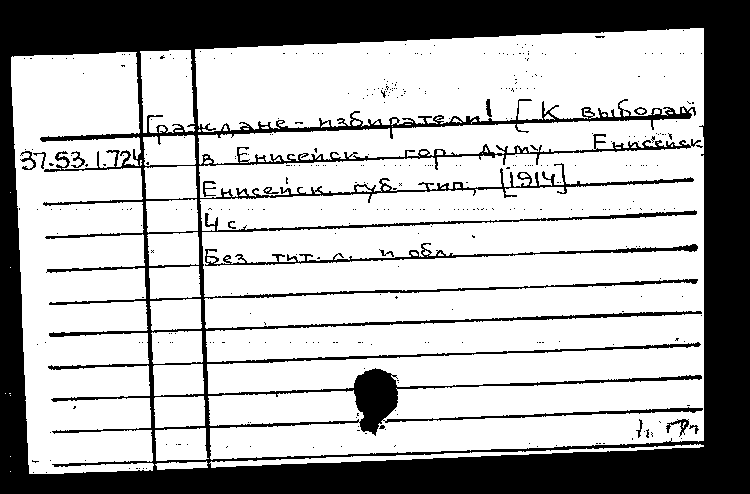 Граждане-избиратели! [К выборам
37.53.1.724. в Енисейск. гор. Думу. Енисейск]
Енисейск. губ. тип., [1914].
4 с.
Без тит. л. и обл.